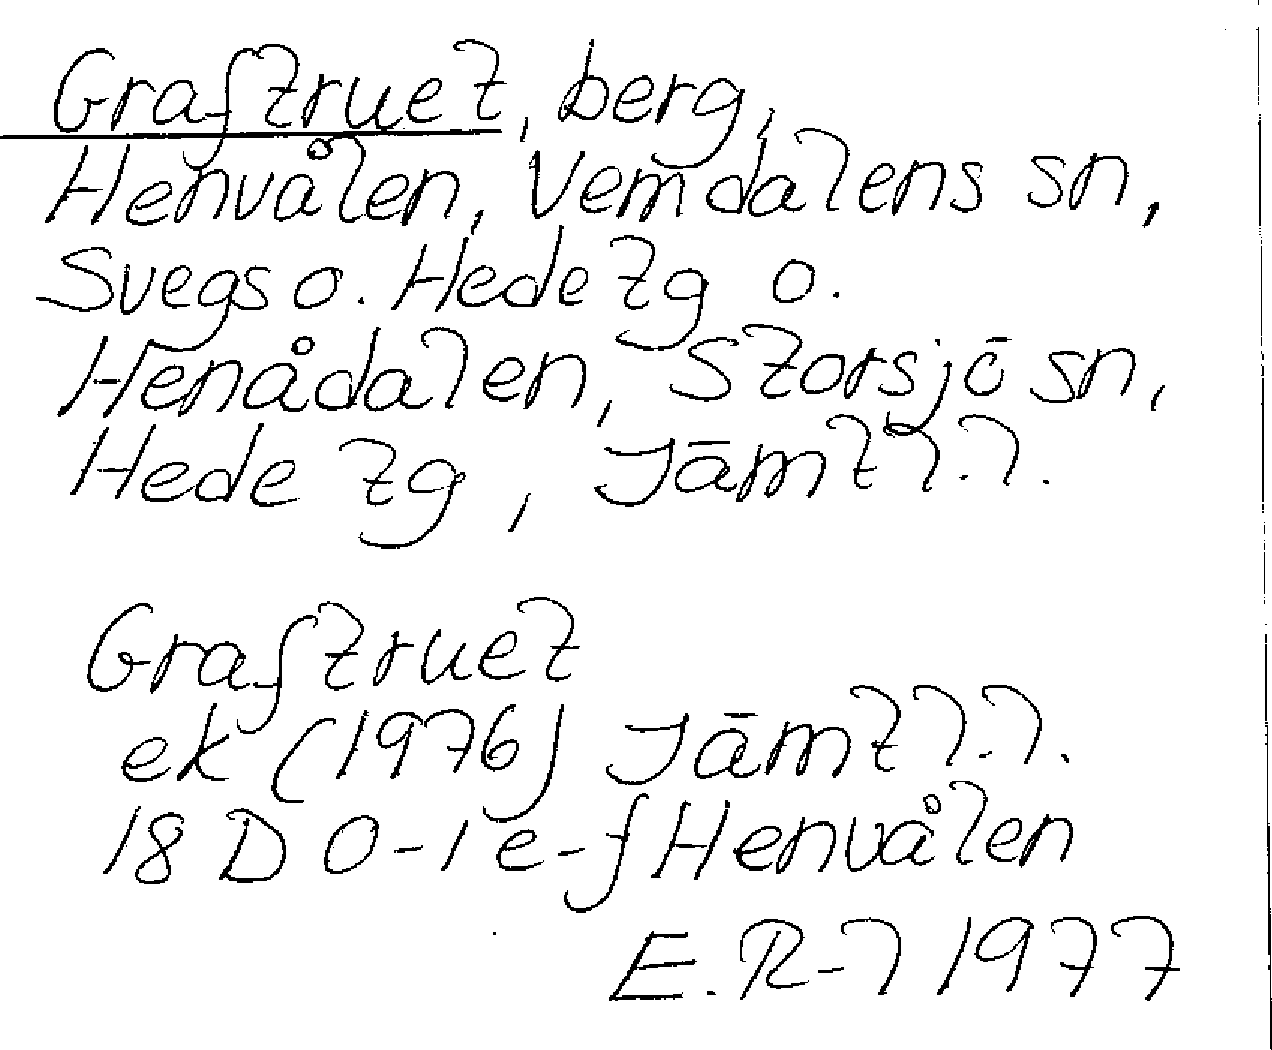 Graftruet, berg,
Henvålen, Vemdalens sn,
Svegs o. Hede tg o.
Henådalen, Storsjö sn,
Hede tg, Jämtl.l.
Graftruet
ek (1976) Jämtl.l.
18 D 0-1 e-f Henvålen
E.R-l 1977